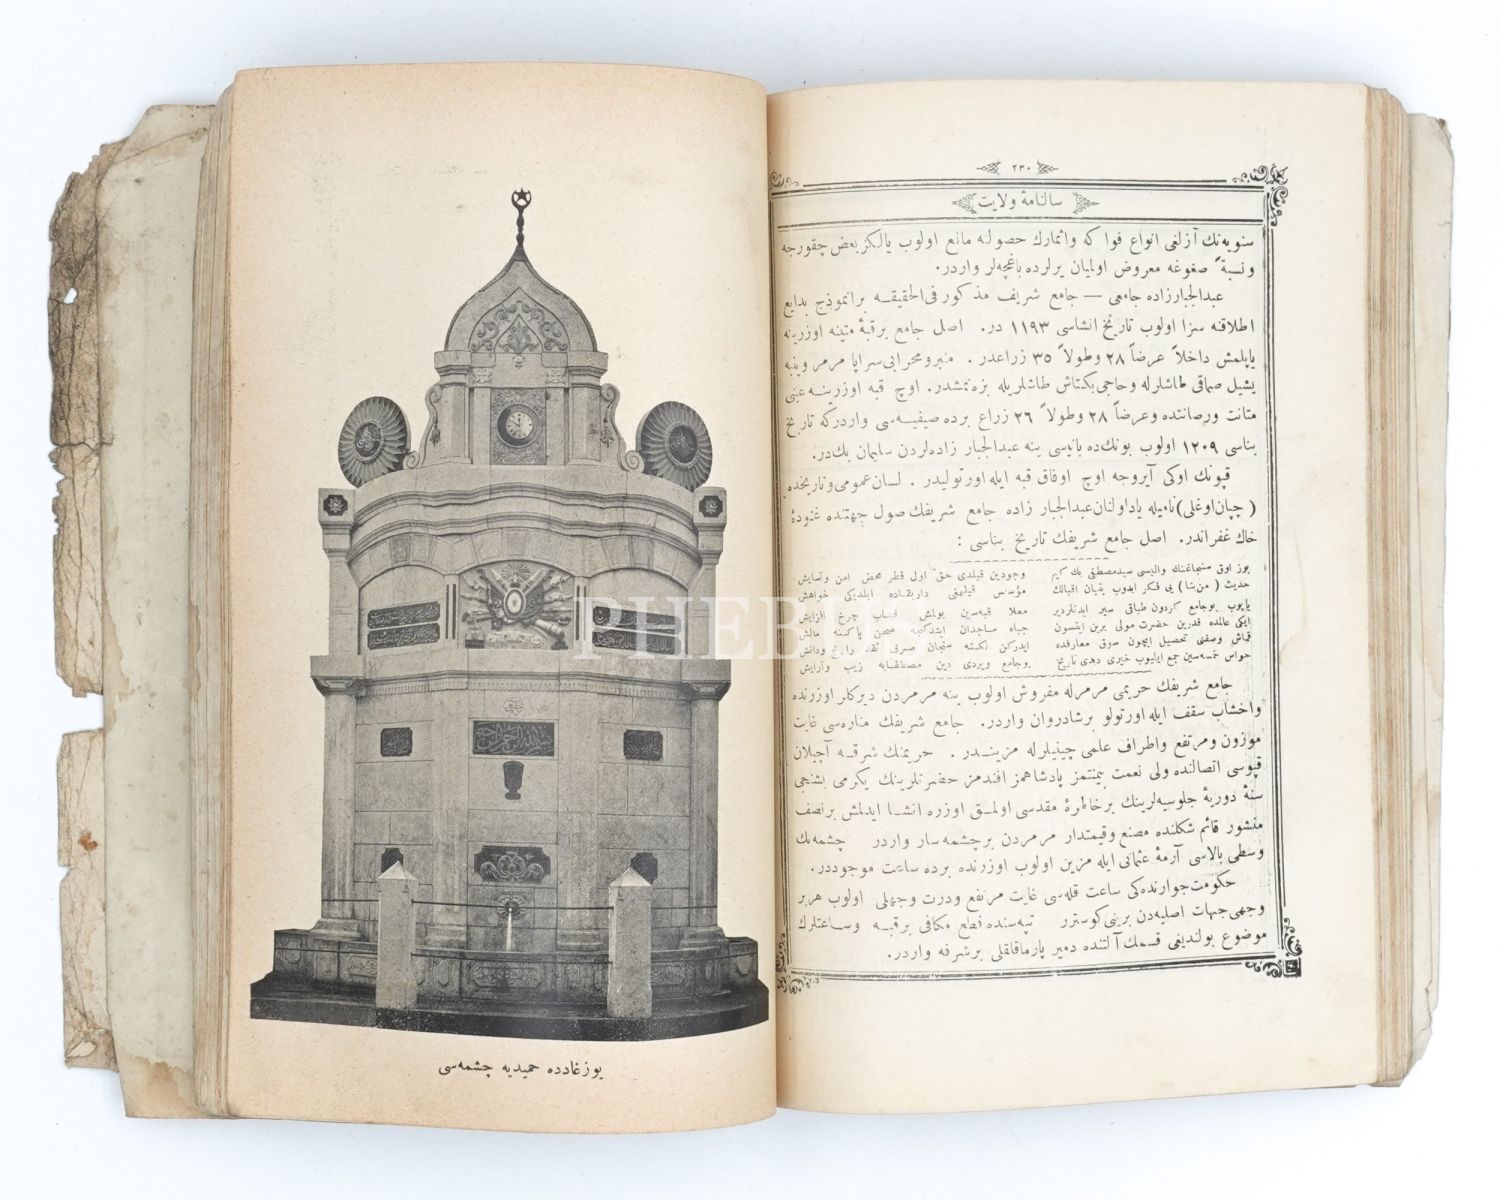 ٢٣٠
سالنامۀ ولایت
سنویه‌نك آزلغی انواع فوا كه واثمارك حصولنه مانع اولوب یالكز بعض چقورجه
ونسبةً صغوغه معروض اولمیان یرلرده باغچه‌لر واردر.
عبدالجبارزاده جامعی — جامع شریف مذكور فی‌الحقیقه برانموذج بدایع
اطلاقنه سزا اولوب تاریخ انشاسی ١١٩٣ در. اصل جامع برقبۀ متینه اوزرینه
یاپلمش داخلاً عرضاً ٢٨ وطولاً ٣٥ ذراعدر. منبرومحرابی سراپا مرمر وینبه
یشیل صماقی طاشلرله وحاجی بكتاش طاشلریله بزه‌نمشدر. اوچ قبه اوزرینه‌عنی
متانت ورصانتده وعرضاً ٢٨ وطولاً ٢٦ زراع برده صیفیه‌سی واردركه تاریخ
بناسی ١٢٠٩ اولوب بونك‌ده بانیسی ینه عبدالجبار زاده‌لردن سلیمان بك‌در.
قپونك اوكی آیروجه اوچ اوفاق قبه ایله اورتولیدر. لسان عمومی‌وتاریخده
(چپان‌اوغلی) نامیله یاداولنان‌عبدالجبار زاده جامع شریفك صول جهتنده غنودۀ
خاك غفراندر. اصل جامع شریفك تاریخ بناسی :
بوز اوق سنجاغنك والیسی سیدمصطفی بك كیم
وجودین قیلدی حق اول قطر محض امن وآسایش
حدیث (من‌بنا) یی فكر ایدوب بنیان اقبالك
مؤسس قیلمغی داربقاده ایلدیكی خواهش
یاپوب بوجامع كردون طباقی سیر ایدنلردیر
معلا قبه‌سین بولمش چرخ افزایش
ایكی عالمده قدرین حضرت مولی برین ایتسون
جباه ساجدان ایتدكجه صحن پاكنه مالش
قماش وصفنی تحصیل ایچون سوق معارفده
ایدركن نكته سنجان صرف نقد رایج ودانش
حواس خمسه‌سین جمع ایلیوب خیری دیدی تاریخ
بوجامع ویردی دین مصطفایه زیب وآرایش
جامع شریفك حریمی مرمرله مفروش اولوب ینه مرمردن دیركلر اوزرنده
واخشاب سقف ایله اورتولو برشادروان واردر. جامع شریفك مناره‌سی غایت
موزون ومرتفع واطراف علمی چینیلرله مزیندر. حریمنك شرقه آچیلان
قپوسی اتصالنده ولی نعمت بیمنتمز پادشاهمز افندمز حضرتلرینك یكرمی بشنجی
سنۀ دوریۀ جلوسیه‌لرینك برخاطرۀ مقدسی اولمق اوزره انشا ایدلمش برنصف
منشور قائم شكلنده مصنع وقیمتدار مرمردن برچشمه‌سار واردر چشمه‌نك
وسطی بالاسی آرمۀ عثمانی ایله مزین اولوب اوزرنده برده ساعت موجوددر.
حكومت‌جوارنده‌كی ساعت قله‌سی غایت مرتفع ودرت وجهلی اولوب هربر
وجهی جهات اصلیه‌دن برینی كوسترر تپه‌سنده قطع مكافی برقبه وساعتلرك
موضوع بولندیغی قسمك آلتنده دمیر پارماقلقلی برشرفه واردر.
یوزغادده حمیدیه چشمه‌سی
PHEBUS